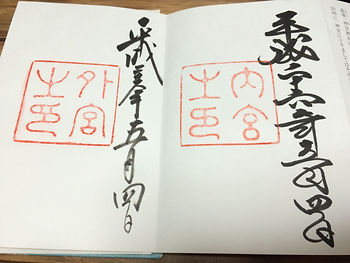 平成二十六年五月四日
内宮
之印
平成 年五月四日
外宮
之印